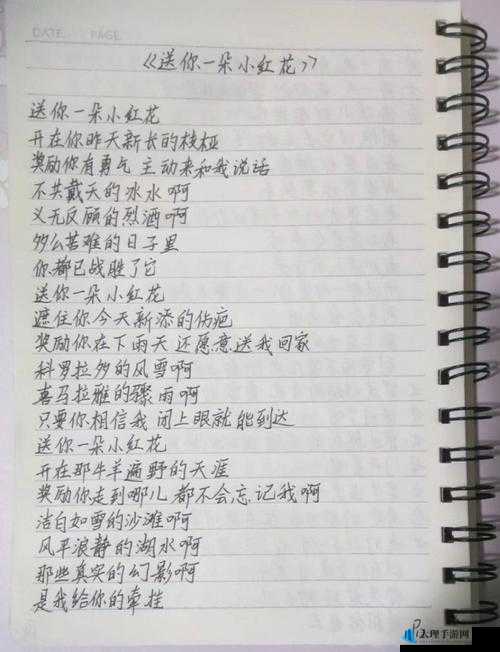 DATE PAGE
《送你一朵小红花》
送你一朵小红花
开在你昨天新长的枝桠
奖励你有勇气 主动来和我说话
不共戴天的冰水啊
义无反顾的烈酒啊
多么苦难的日子里
你都已战胜了它
送你一朵小红花
遮住你今天新添的伤疤
奖励你在下雨天 还愿意送我回家
科罗拉多的风雪啊
喜马拉雅的骤雨啊
只要你相信我 闭上眼就能到达
送你一朵小红花
开在那牛羊遍野的天涯
奖励你走到哪儿 都不会忘记我啊
洁白如雪的沙滩啊
风平浪静的湖水啊
那些真实的幻影啊
是我给你的牵挂
大理手游网